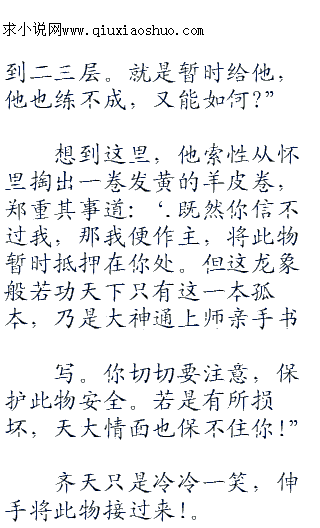 求小说网www.qiuxiaoshuo.com
到二三层。就是暂时给他，
他也练不成，又能如何?”
想到这里，他索性从怀
里掏出一卷发黄的羊皮卷，
郑重其事道：‘.既然你信不
过我，那我便作主，将此物
暂时抵押在你处。但这龙象
般若功天下只有这一本孤
本，乃是大神通上师亲手书
写。你切切要注意，保
护此物安全。若是有所损
坏，天大情面也保不住你!”
齐天只是冷冷一笑，伸
手将此物接过来!。